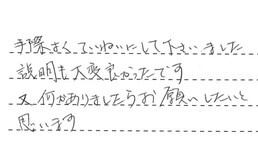 手際よくていねいにして下さいました
説明も大変良かったです
又何かありましたらお願いしたいと
思います